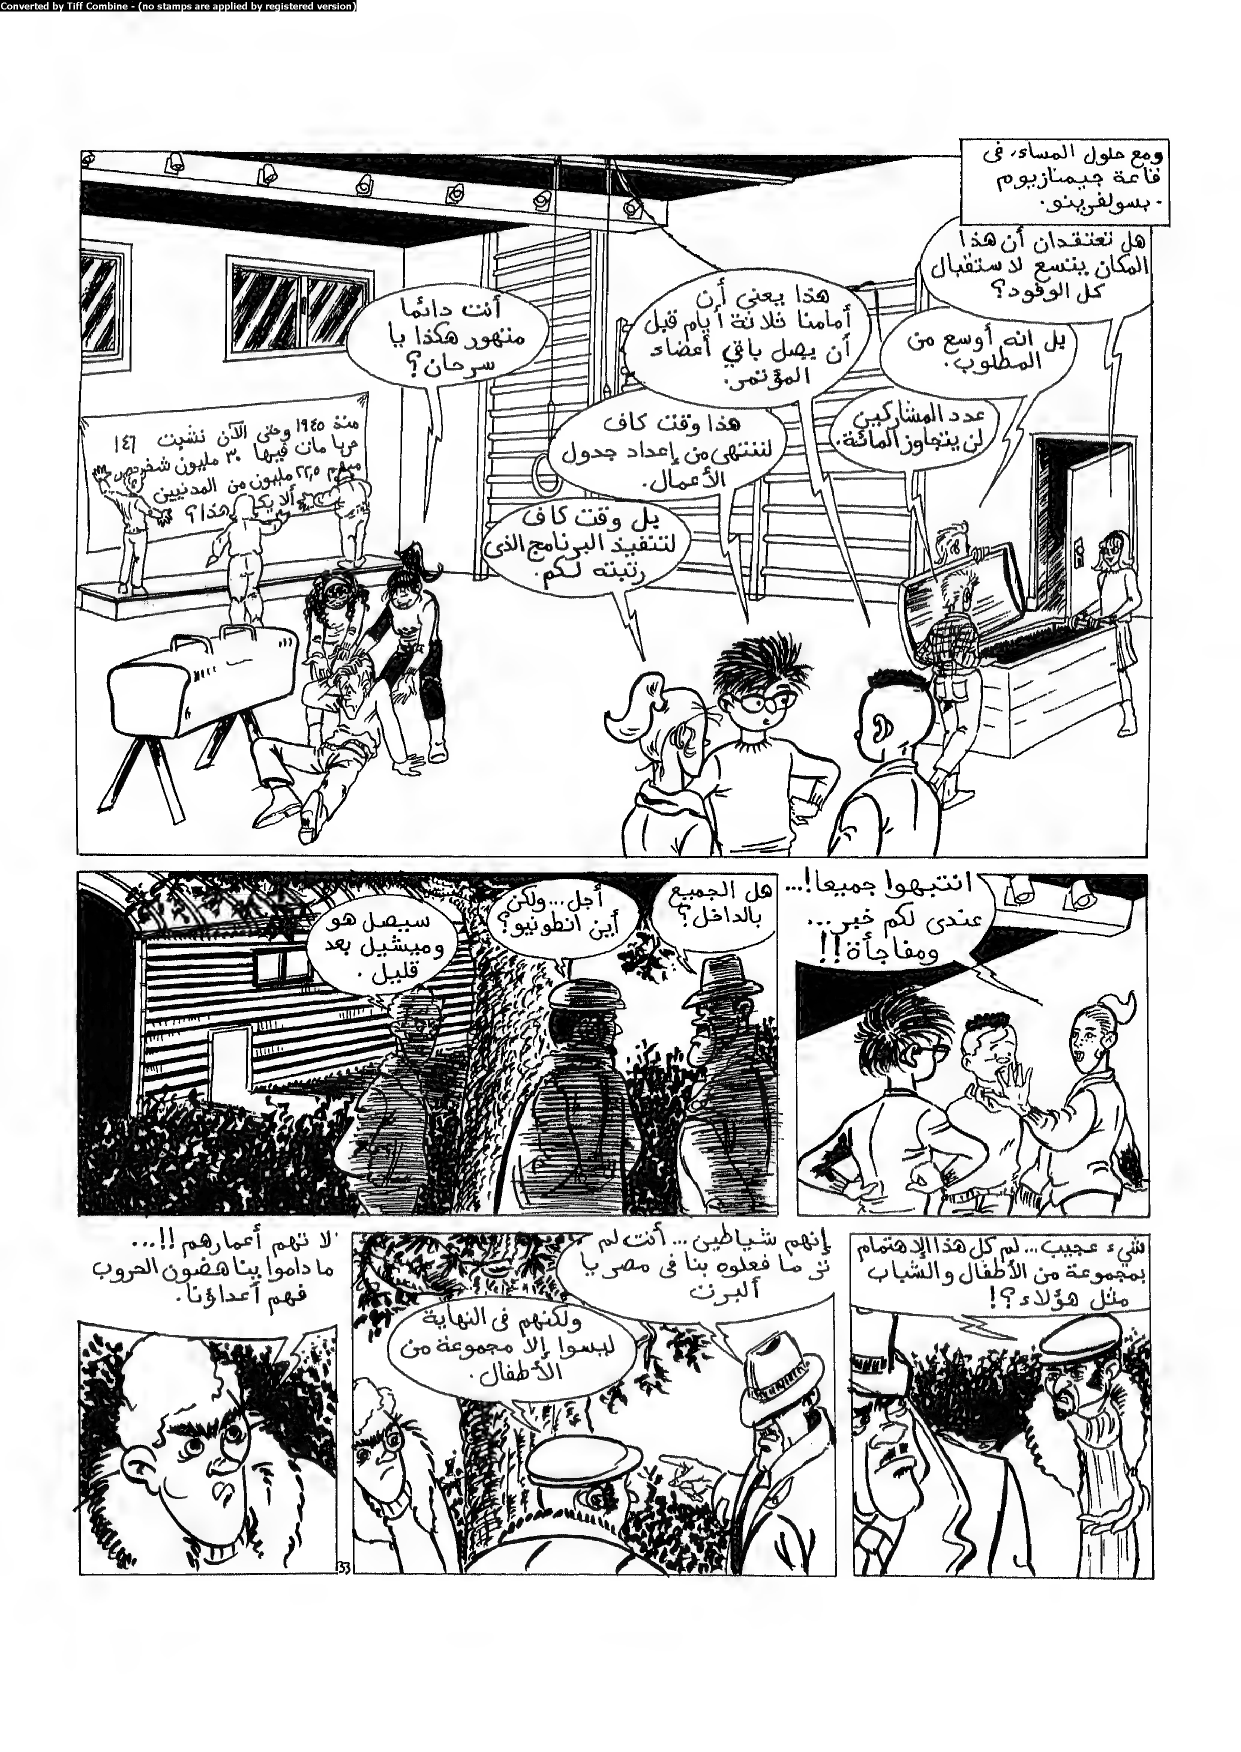 Converted by Tiff Combine - (no stamps are applied by registered version)
ومع حلول المساء، فى
قاعة جيمنازيوم
بسولفرينو.
هل تعتقدان أن هذا
المكان يتسع لاستقبال
كل الوفود؟
بل انه أوسع من
المطلوب.
عدد المشاركين
لن يتجاوز المائة.
هذا يعنى أن
أمامنا ثلاثة أيام قبل
أن يصل باقي أعضاء
المؤتمر.
هذا وقت كاف
لننتهى من إعداد جدول
الأعمال.
بل وقت كاف
لتنفيذ البرنامج الذى
رتبته لكم.
أنت دائما
متهور هكذا يا
سرحان؟
منذ ١٩٤٥ وحتى الآن نشبت ١٤٦
حربا مات فيها ٣٠ مليون شخص
منهم ٢٢,٥ مليون من المدنيين
ألا يكفى هذا؟
انتبهوا جميعا!...
عندى لكم خبر...
ومفاجأة!!
هل الجميع
بالداخل؟
أجل... ولكن
أين انطونيو؟
سيصل هو
وميشيل بعد
قليل.
شيء عجيب... لم كل هذا الإهتمام
بمجموعة من الأطفال والشباب
مثل هؤلاء؟!
إنهم شياطين... أنت لم
تر ما فعلوه بنا فى مصر يا
ألبرت
ولكنهم فى النهاية
ليسوا إلا مجموعة من
الأطفال.
لا تهم أعمارهم!!...
ما داموا يناهضون الحروب
فهم أعداؤنا.
33